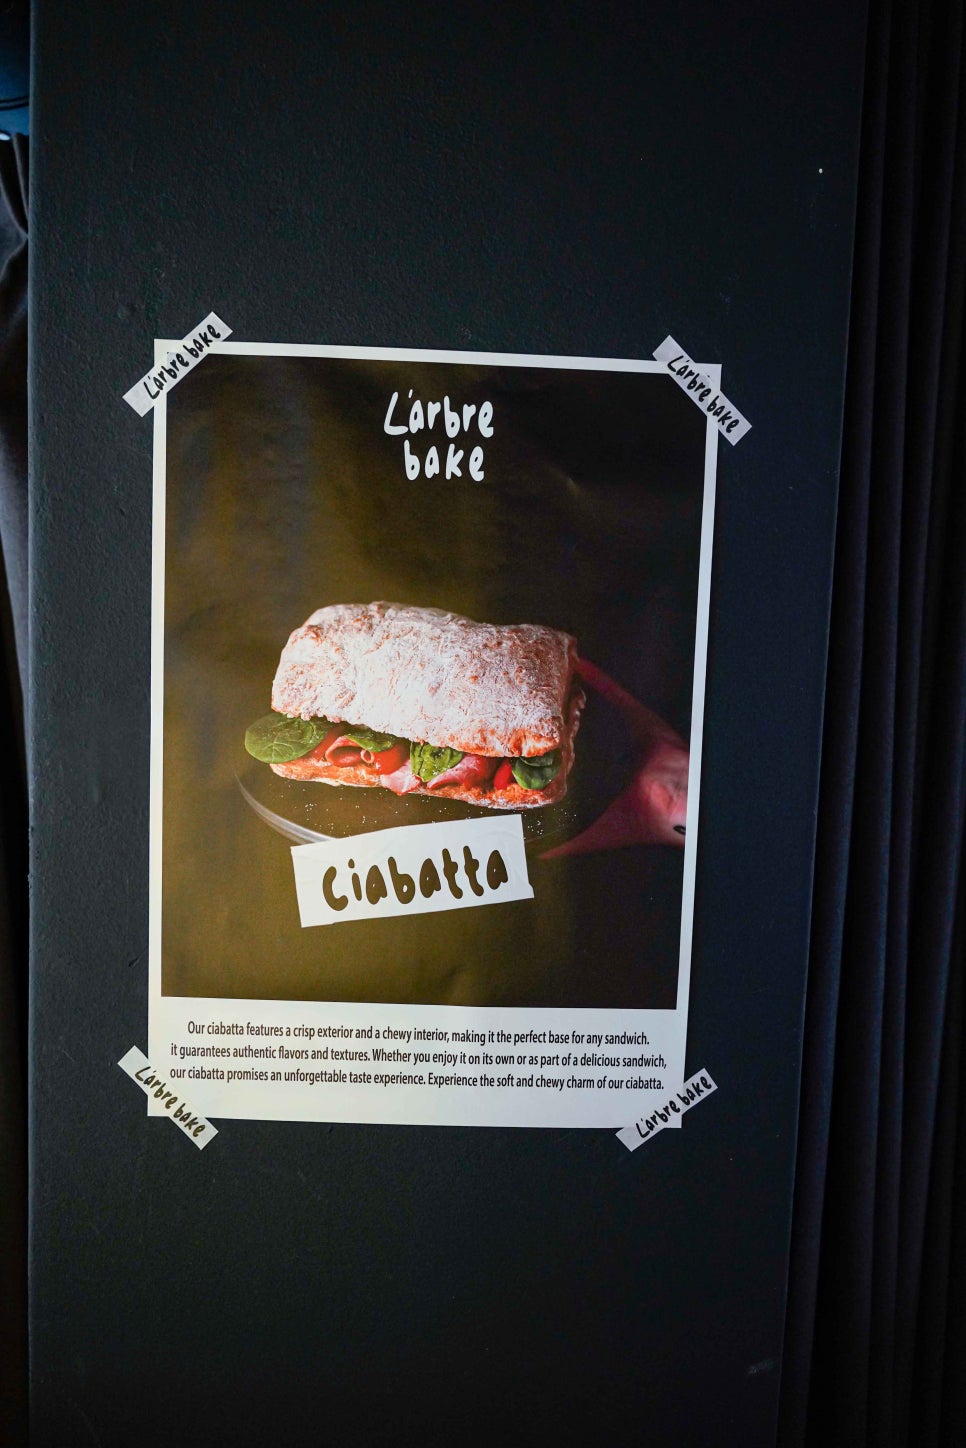 L'arbre bake
L'arbre bake
L'arbre
bake
Ciabatta
Our ciabatta features a crisp exterior and a chewy interior, making it the perfect base for any sandwich.
it guarantees authentic flavors and textures. Whether you enjoy it on its own or as part of a delicious sandwich,
our ciabatta promises an unforgettable taste experience. Experience the soft and chewy charm of our ciabatta.
L'arbre bake
L'arbre bake